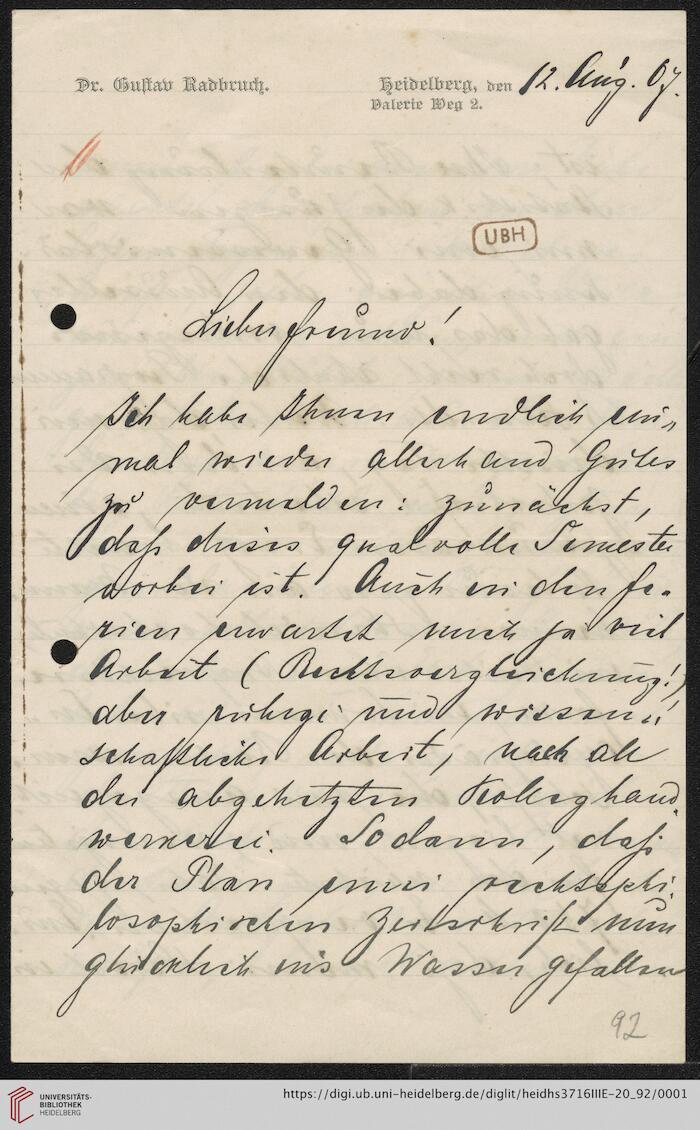 Dr. Gustav Radbruch.
Heidelberg, den 12. Aug. 07.
Valerie Weg 2.
UBH
Lieber Freund!
Ich habe Ihnen endlich ein-
mal wieder allerhand Gutes
zu vermelden: zunächst,
daß dieses qualvolle Semester
vorbei ist. Auch in den Fe-
rien erwartet mich ja viel
Arbeit (Rechtsvergleichung!)
aber ruhige und wissen-
schaftliche Arbeit, nach all
der abgehetzten Kolleghand-
werkerei. Sodann, daß
der Plan einer rechtsphi-
losophischen Zeitschrift nun
glücklich ins Wasser gefallen
92
UNIVERSITÄTS-
BIBLIOTHEK
HEIDELBERG
https://digi.ub.uni-heidelberg.de/diglit/heidhs3716IIIE-20_92/0001